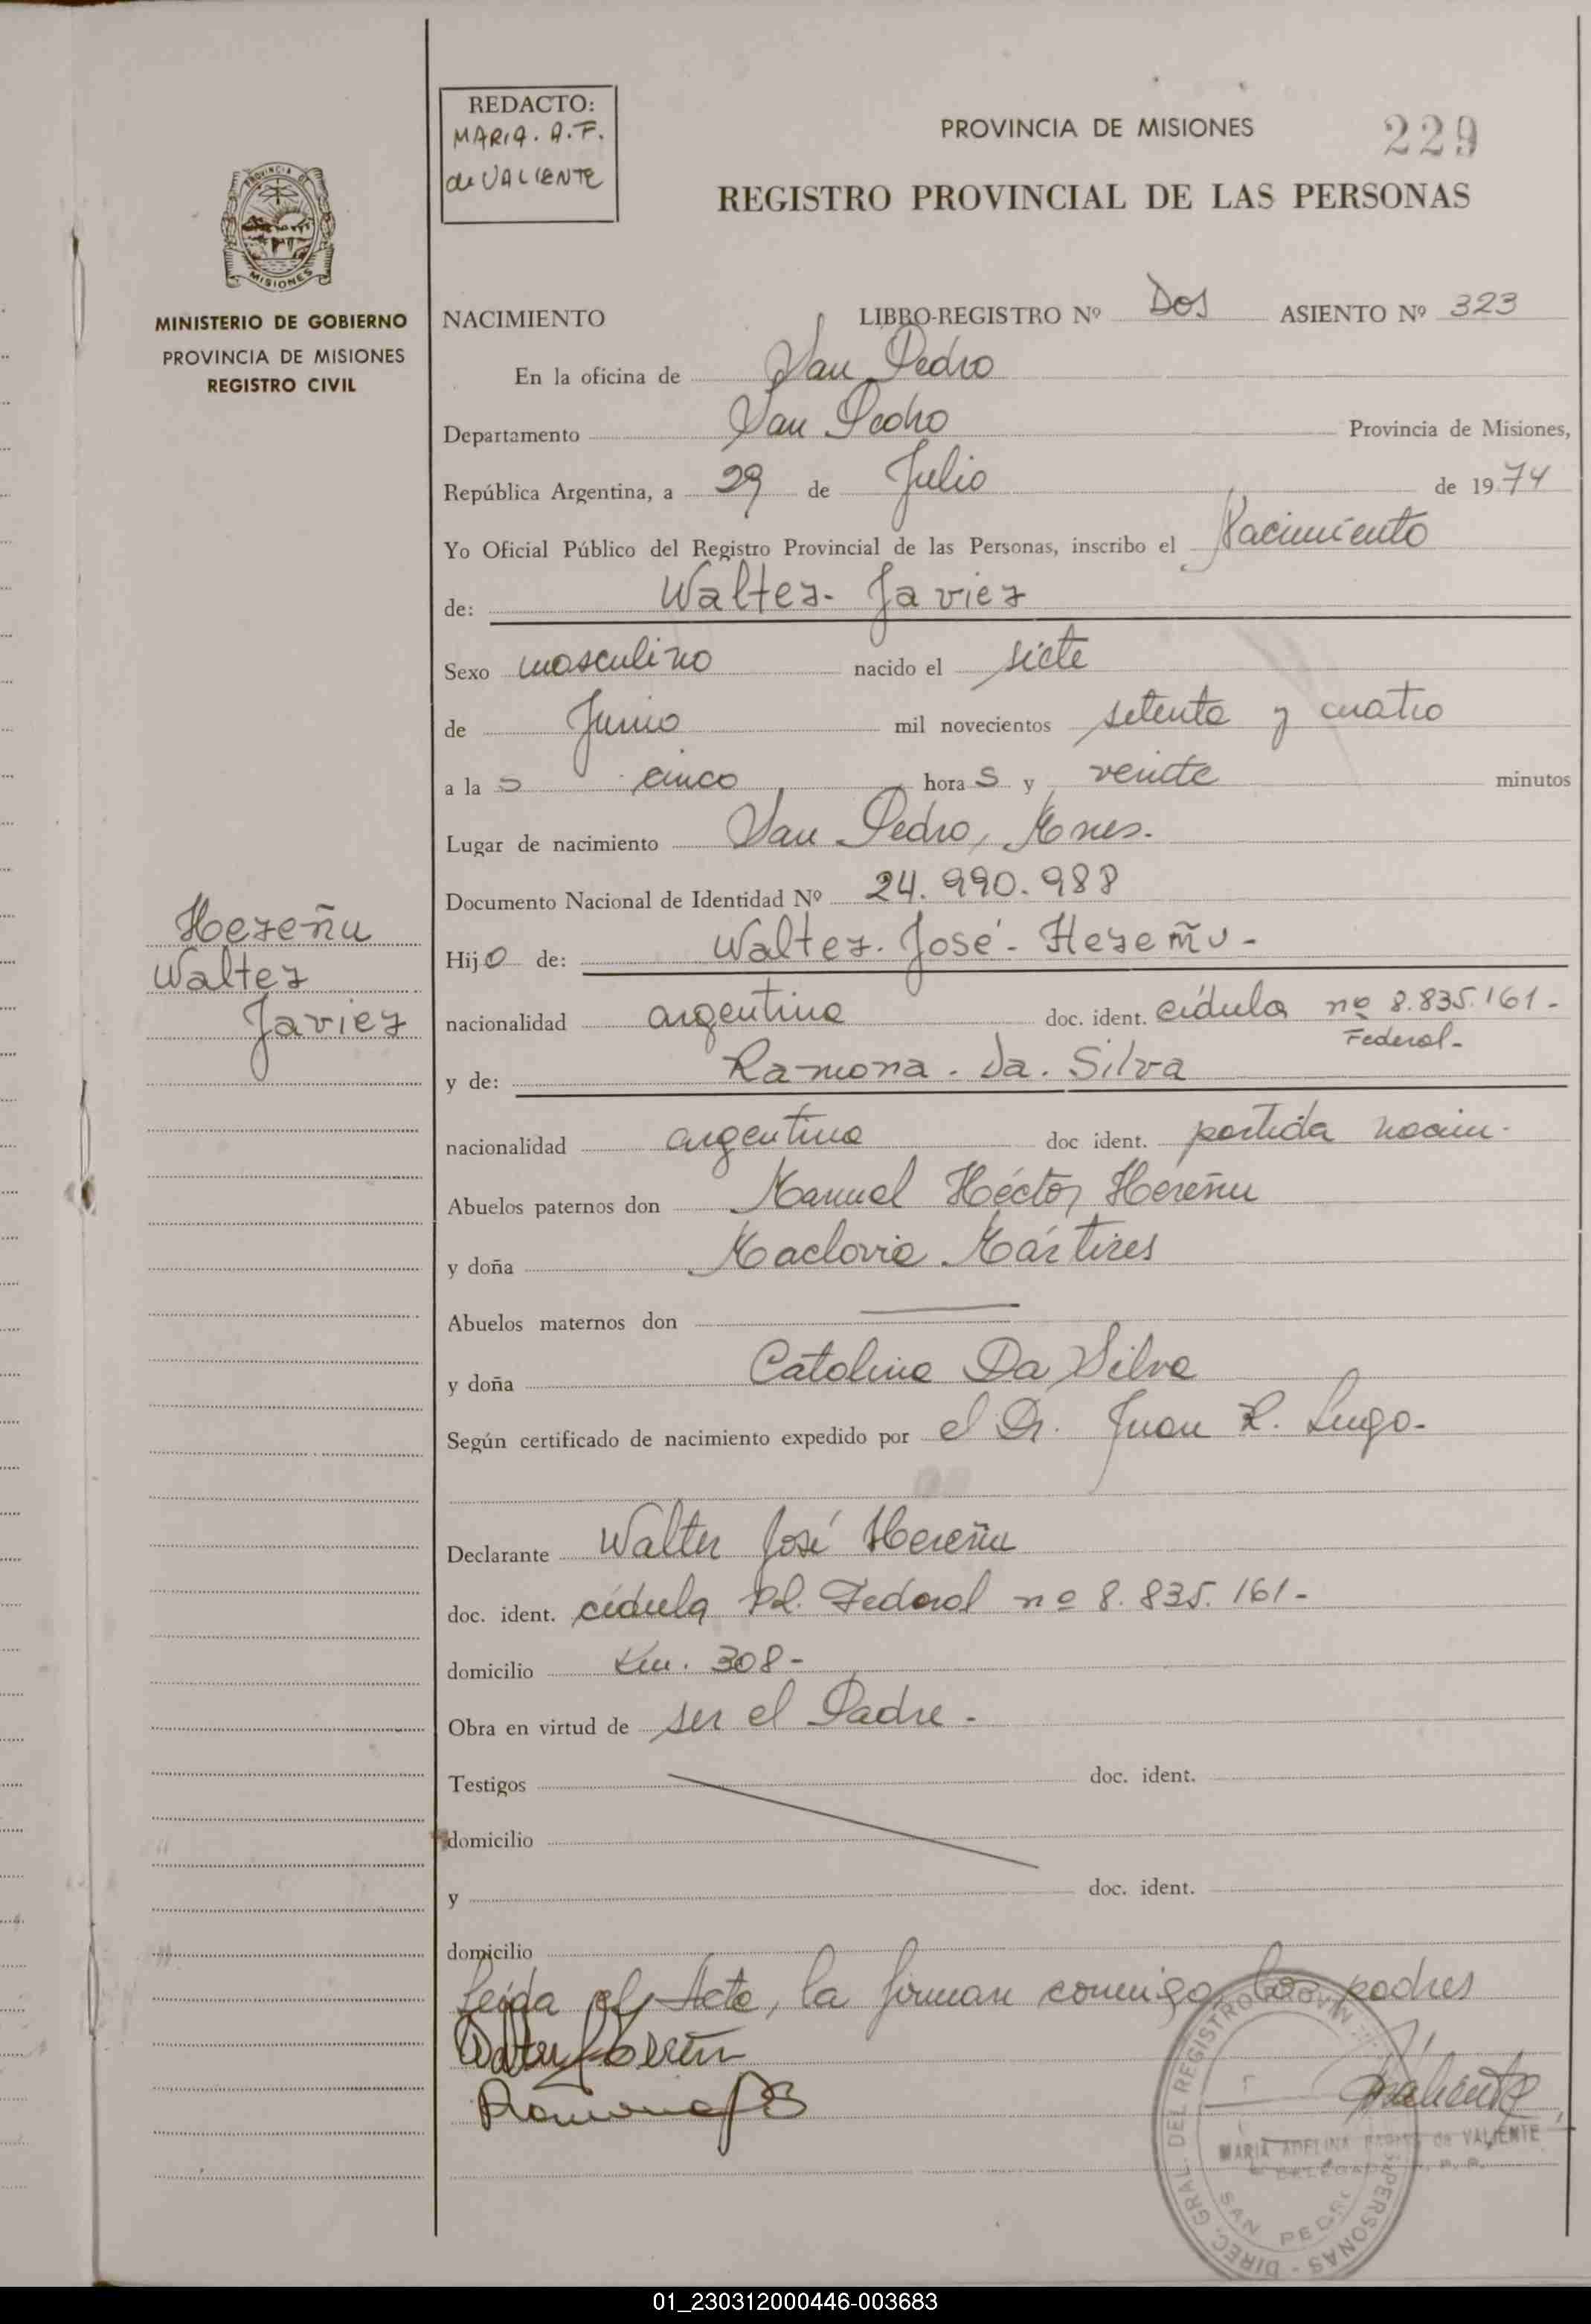 REDACTO:
MARIA. A. F.
de VALIENTE
PROVINCIA DE MISIONES
229
REGISTRO PROVINCIAL DE LAS PERSONAS
PROVINCIA DE
MISIONES
MINISTERIO DE GOBIERNO
PROVINCIA DE MISIONES
REGISTRO CIVIL
NACIMIENTO LIBRO-REGISTRO Nº Dos ASIENTO Nº 323
En la oficina de San Pedro
Departamento San Pedro Provincia de Misiones,
República Argentina, a 29 de Julio de 1974
Yo Oficial Público del Registro Provincial de las Personas, inscribo el Nacimiento
de: Walter- Javier
Sexo masculino nacido el siete
de Junio mil novecientos setenta y cuatro
a la s cinco hora s y veinte minutos
Lugar de nacimiento San Pedro, Mnes.
Documento Nacional de Identidad Nº 24.990.988
Hereñu
Walter
Javier
Hijo de: Walter. José- Hereñu-
nacionalidad argentina doc. ident. cédula nº 8.835.161-
Federal-
y de: Ramona. Da. Silva
nacionalidad argentina doc ident. partida nacim.
Abuelos paternos don Manuel Héctor Hereñu
y doña Maclovia Mártires
Abuelos maternos don
y doña Catalina Da Silva
Según certificado de nacimiento expedido por el Dr. Juan R. Lugo-
Declarante Walter José Hereñu
doc. ident. cédula Pol. Federal nº 8.835.161-
domicilio Km. 308-
Obra en virtud de ser el Padre-
Testigos doc. ident.
domicilio
y doc. ident.
domicilio
Leída el Acta, la firman conmigo los padres
Walter Hereñu
Ramona
Valiente
MARIA ADELINA de VALIENTE
DELEGADA R. P. P.
DIREC. GRAL. DEL REGISTRO PROVIN PERSONAS -
SAN PEDRO
01_230312000446-003683